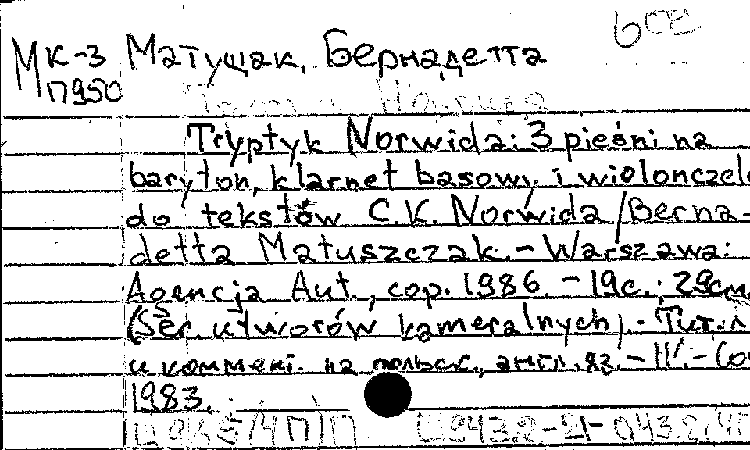 МК-3 Матущак, Бернадетта
П950
Tryptyk Norwida: 3 pieśni na
baryton, klarnet basowy i wiolonczelę
do tekstów C.K. Norwida / Berna-
detta Matuszczak. - Warszawa:
Agencja Aut., cop. 1986. - 19с.; 29см.
(Ser. utworów kameralnych). - Тит. л.
и коммент. на польск., англ. яз. -
1983.